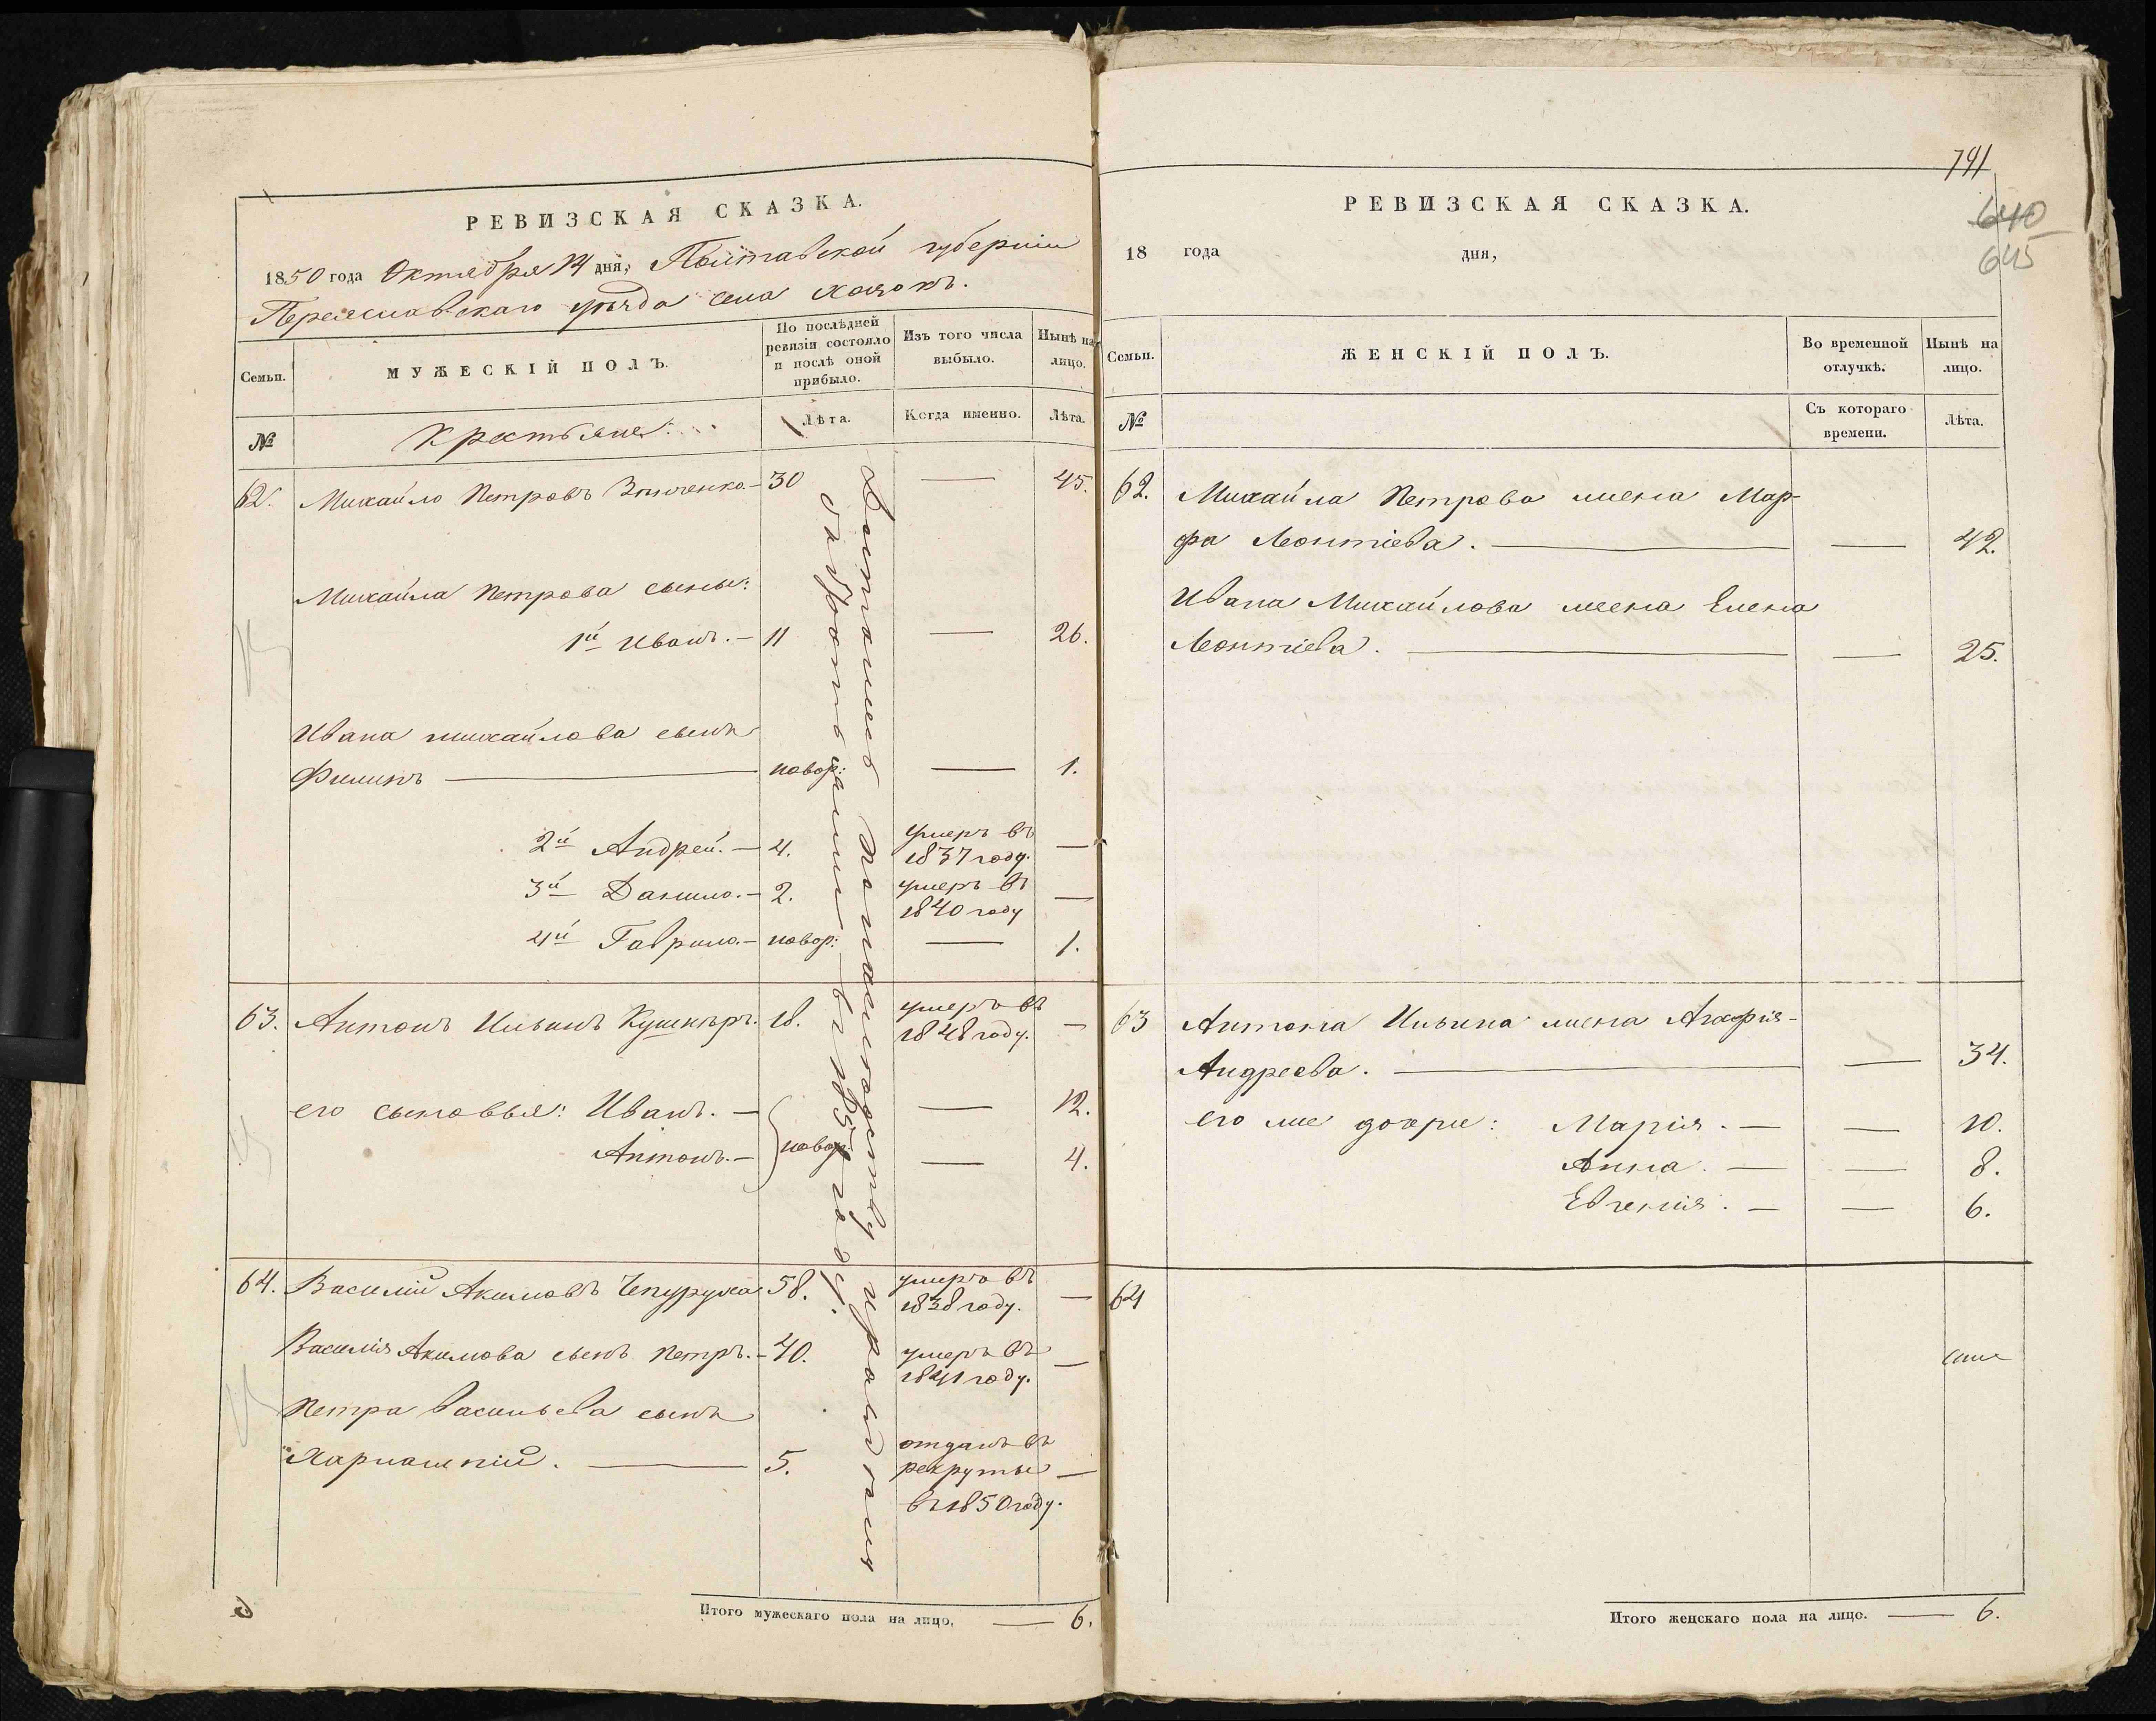 РЕВИЗСКАЯ СКАЗКА.
1850 года Октября 14 дня, Полтавской губерніи
Переяславскаго уѣзда села Хоцокъ.
Семьи.
МУЖЕСКІЙ ПОЛЪ.
По послѣдней
ревизіи состояло
и послѣ оной
прибыло.
Изъ того числа
выбыло.
Нынѣ на
лицо.
№
Крестьяне:
Лѣта.
Когда именно.
Лѣта.
62. Михайло Петровъ Зинченко. — 30 — 45.
Михайла Петрова сыны:
1й Иванъ. — 11 — 26.
Ивана михайлова сынъ
Филипъ — новор: — 1.
2й Андрей. — 4. умеръ въ 1837 году. —
3й Данило. — 2. умеръ въ 1840 году —
4й Гаврило. — новор: — 1.
63. Антонъ Ильинъ Кушнѣръ. 18. умеръ въ 1848 году. —
его сыновья: Иванъ. — новор: — 12.
Антонъ. — — 4.
64. Василій Акимовъ Чепуруха 58. умеръ въ 1838 году. —
Василія Акимова сынъ Петръ. — 40. умеръ въ 1841 году. —
Петра васильева сынъ
Харлампій. — 5. отданъ въ рекруты въ 1850 году. —
Итого мужескаго пола на лицо. — 6.
741
640
645
РЕВИЗСКАЯ СКАЗКА.
18 года дня,
Семьи.
ЖЕНСКІЙ ПОЛЪ.
Во временной
отлучкѣ.
Нынѣ на
лицо.
№
Съ котораго
времени.
Лѣта.
62. Михайла Петрова жена Мар-
фа Леонтіева. — — 42.
Ивана Михайлова жена Елена
Леонтіева. — — 25.
63 Антона Ильина жена Агафія
Андреева. — — 34.
его же дочери: Марія. — — 10.
Анна. — — 8.
Евгенія. — — 6.
64
Итого женскаго пола на лицо. — 6.